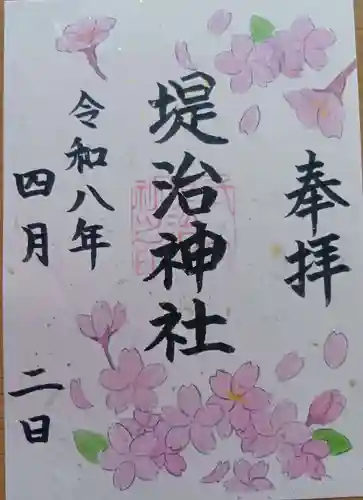 奉拝
堤治神社
令和八年
四月二日